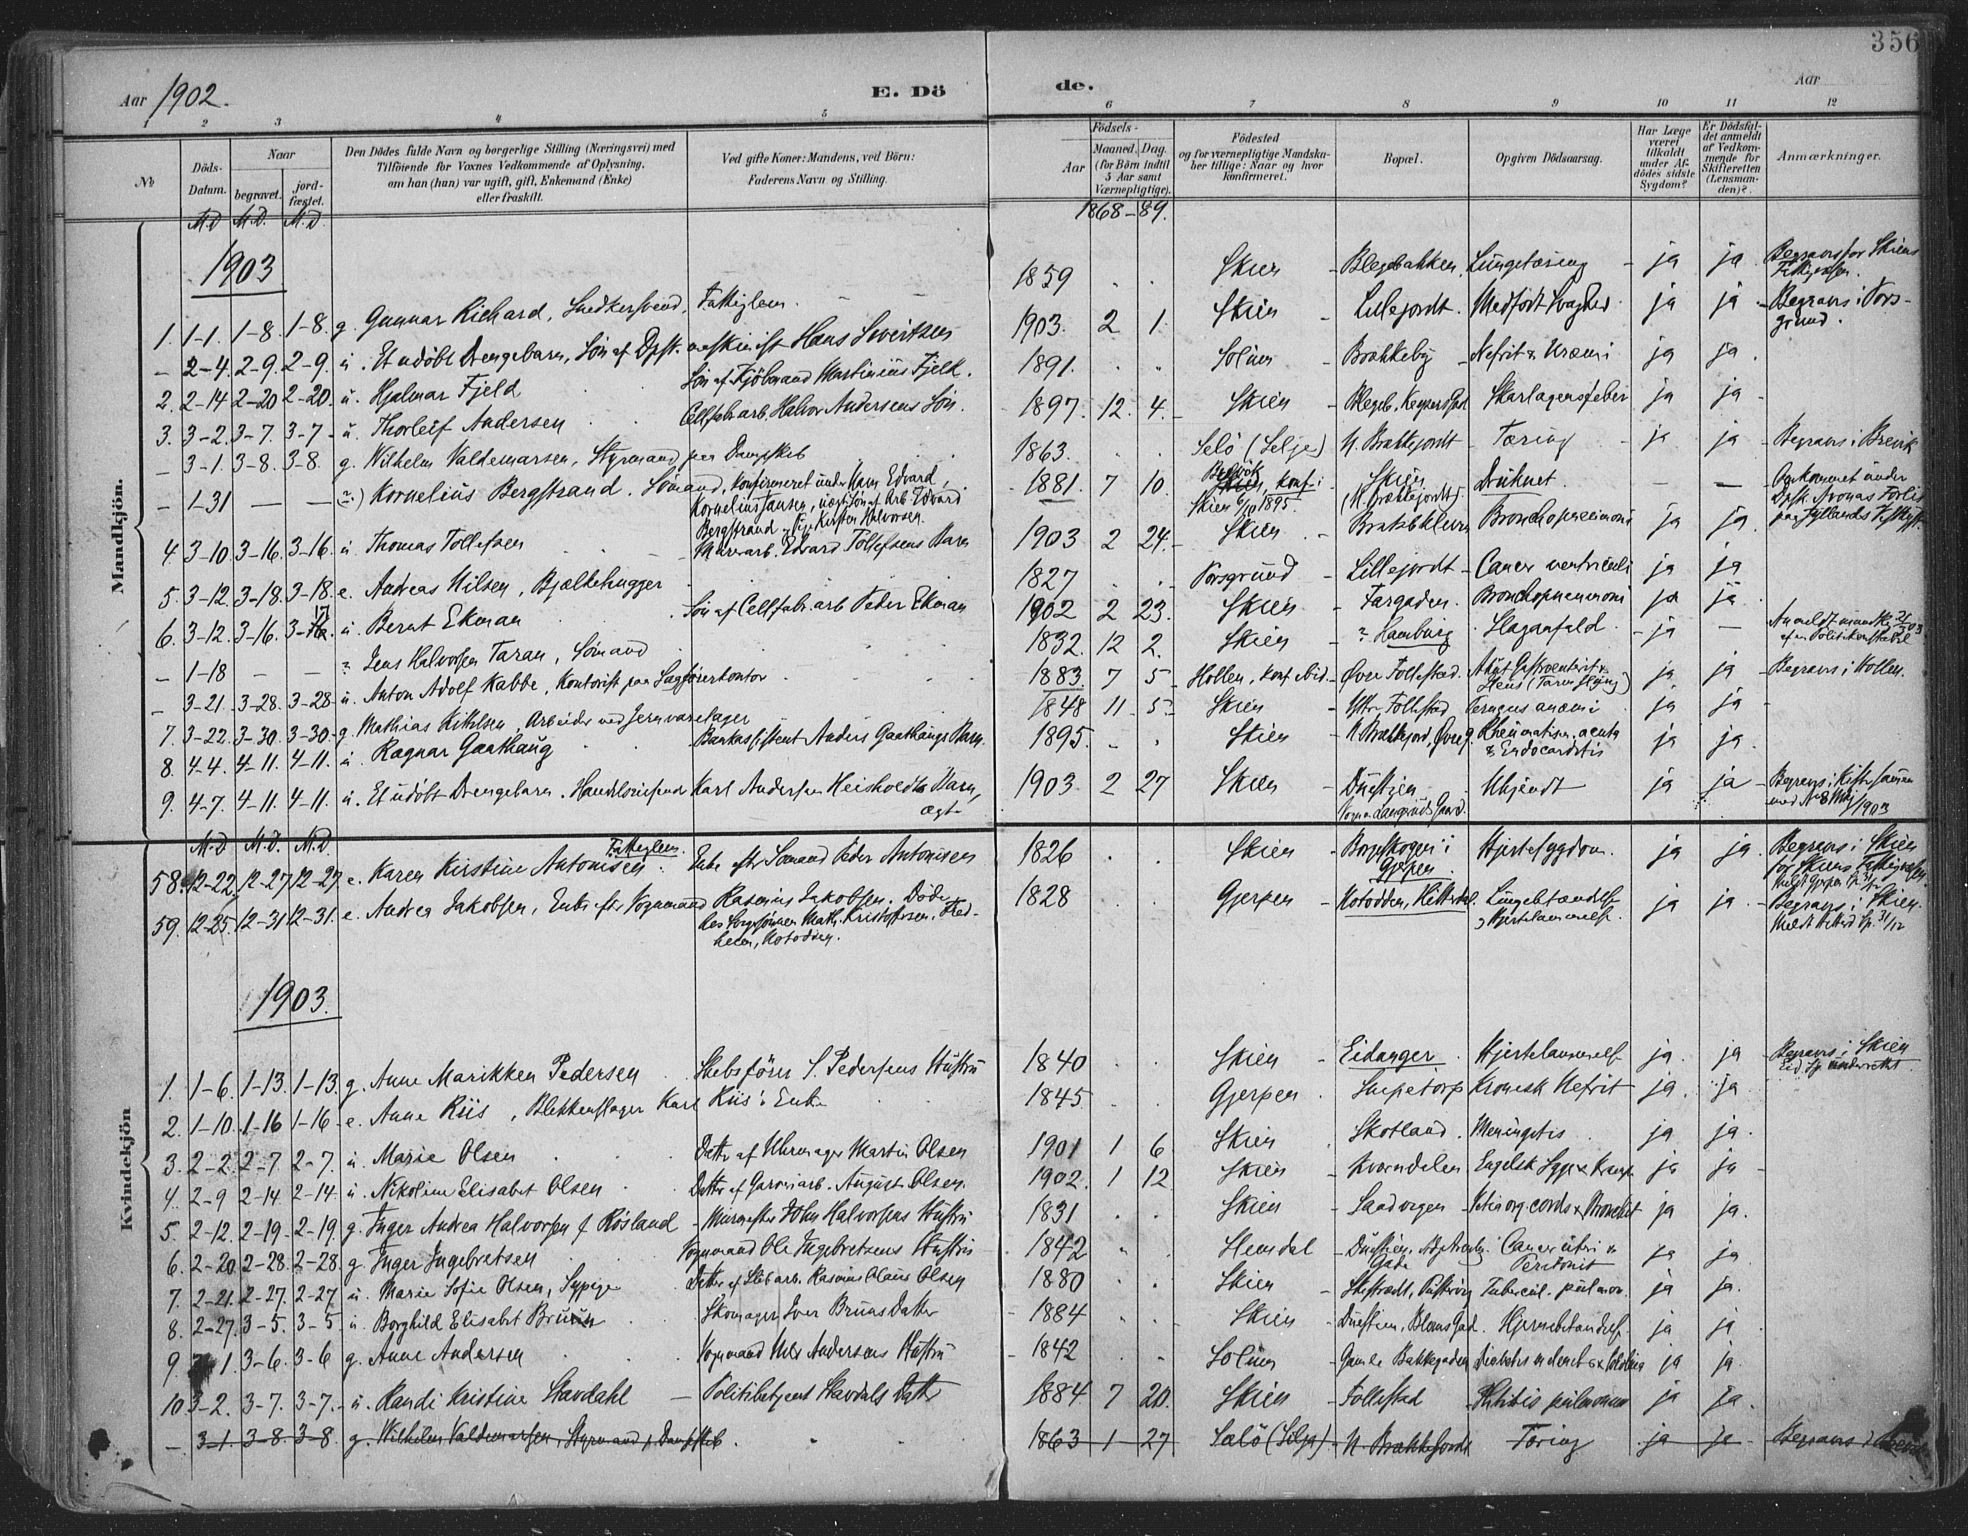 356
Aar 1902. E. Dö de. Aar
1 2 3 4 5 6 7 8 9 10 11 12
No
Döds-Datum.
Naar
begravet.
jord-fæstet.
Den Dödes fulde Navn og borgerlige Stilling (Næringsvei) med
Tilföiende for Voxnes Vedkommende af Oplysning,
om han (hun) var ugift, gift, Enkemand (Enke)
eller fraskilt.
Ved gifte Koner: Mandens, ved Börn:
Faderens Navn og Stilling.
Födsels-
Aar
Maaned. Dag.
(for Börn indtil
5 Aar samt
Værnepligtige).
Födested
og for værnepligtige Mandska-
ber tillige: Naar og hvor
konfirmeret.
Bopæl.
Opgiven Dödsaarsag.
Har Læge
været
tilkaldt
under Af-
dödes sidste
Sygdom?
Er Dödsfal-
det anmeldt
af Vedkom-
mende for
Skifteretten
(Lensman-
den)?
Anmærkninger.
M.D M.D. M.D. 1868-89.
Mandkjön.
1903
1. 1-1. 1-8. 1-8. g. Gunnar Richard, Snedkersvend, Fattiglem. 1859 Skien - Blegebakken, Lungetæring - ja ja Begraves for Skiens Fattigvæsen.
- 2-4. 2-9. 2-9. u. Et udöbt Drengebarn, Sön af Dpsk. maskinist Hans Sivertsen 1903. 2 1. Skien - Lillejordt. Medfödt Svaghed. ja ja - Begraves i Pors-
grund.
2. 2-14 2-20 2-20. u. Hjalmar Fjeld Sön af Kjöbmand Martinius Fjeld. 1891. Solum - Brekkeby - Nefrit & Uræmi ja ja.
3. 3-2. 3-7. 3-7 - u. Thorleif Andersen Cellfabr.arb. Halvor Andersens Sön. 1897. 12. 4. Skien - Blegeb., Keysers Gad Skarlagensfeber ja ja
- 3-1. 3-8. 3-8. g. Wilhelm Valdemarsen, Styrmand paa Dampskib 1863. Selö (Selje) N. Brekkejordt - Tæring - ja ja - Begraves i Brevik
- 1-31 - - u.) Kornelius Bergstrand. Sömand, konfirmeret under Navn Edvard
Kornelius Jansen, uægte Sön af Arb. Edvard
Bergstrand og Pige Kirsten Halvorsen. 1881. 7 10. Skien konf. i
Skien 6/10 1895. Skien
(N. Brekkejordt). Druknet. - - Omkommet under
Dpsk. Avonas Forlis
paa Jyllands Vestkyst
4. 3-10. 3-16. 3-16. u. Thomas Tollefsen Murerarb. Edvard Tollefsens Barn 1903 2 24. - Skien - Bratsbkleven Bronchopneumoni ja ja.
5. 3-12. 3-18. 3-18. e. Andreas Nilsen, Bjælkehugger 1827 Porsgrund - Lillejordt - Cancer ventriculi ja ja
6. 3-12. 3-16. 3-17 u. Bernt Ekman Sön af Cellfabr.arb Peder Ekman 1902 2 23. Skien - Fargaden. Bronchopneumoni ja ja
- 1-18 - - ? Jens Halvorsen Taran, Sömand 1832. 12 2. Skien - ? Hamburg. Slaganfald. - ja - Anmeldt mundtlig
af en Politikonstabel
- 3-21. 3-28. 3-28 u. Anton Adolf Kabbe, Kontorist paa Sagförerkontor 1883 7 5 Hollen, konf. ibid - Övre Follestad. Akut Gastroenterit &
Ileus (Tarmslyng) ja ja - Begraves i Hollen.
7. 3-22. 3-30. 3-30 - g. Mathias Kittilsen, Arbeider ved Jernvarelager 1848 11 - 5. Skien - Ytre Follestad Perniciøs anæmi. ja ja -
8. 4-4. 4-11. 4-11. u. Ragnar Gaathaug Bankassistent Anders Gaathaugs Barn. 1895. Skien - N Brekkejord, Övreg. Rheumatism. acuta
& Endocarditis ja ja.
9. 4-7. 4-11. 4-11. u. Et udöbt Drengebarn. Handelsreisende Karl Andersen Heisholdts Barn,
ægte 1903 2 27 Skien - Duestien
Vognm. Langruds Gaard. Ukjendt ja ja - Begraves i Kiste sammen
med 1903
M.D. M.D. M.D.
Kvindekjön
58. 12-22 12-27 12-27. e. Karen Kirstine Antonisen. Fattiglem. Enke efter Sömand Peder Antonisen 1826 Skien - Borgeskogen i
Gjerpen Hjertesygdom. ja ja. - Begraves i Skien
for Skiens Fattigvæsen.
Meldt Gjerpen
59. 12-25. 12-31 12-31. e. Andrea Jakobsen, Enke efter Vognmand Rasmus Jakobsen. Döde
hos Svigersönnen Math. Kristoffersen, Fred-
heim, Notodden. 1828 Gjerpen - Notodden, Hitterdal. Lungebetændelse
& Hjertelammelse. ja ja. - Begraves i Skien.
Meldt Hitterd. Sp. 31/12
1903.
1. 1-6. 1-13. 1-13. g. Anne Marikken Pedersen Skibsförer S. Pedersens Hustru 1840 Skien - Eidanger. Hjertelammelse ja. ja Begraves i Skien
Eid. Sp. underrettet
2. 1-10. 1-16 1-16 - e. Anne Riis, Blikkenslager Karl Riis's Enke 1845 Gjerpen - Snipetorp Kronisk Nefrit ja. ja
3. 2-2. 2-7. 2-7. u. Marie Olsen Datter af Uhrmager Martin Olsen 1901 1 6 Skien Skotland. Meningitis ja ja.
4. 2-9 2-14 2-14. u. Nikoline Elisabet Olsen Datter af Garveriarb. August Olsen. 1902. 1 12. Skien - Kverndalen Engelsk Syge & Krampe ja ja -
5. 2-12. 2-19. 2-19. g. Inger Andrea Halvorsen f. Rösland - Murmester John Halvorsens Hustru 1831 Skien - Landvegen Vitier org. cordis & Bronchit ja ja.
6. 2-20 2-28. 2-28. g. Inger Ingebretsen Vognmand Ole Ingebretsens Hustru 1842 Slemdal - Duestien,
Gade Cancer uteri &
Peritonit ja ja
7. 2-21. 2-27. 2-27 u. Marie Sofie Olsen, Sypige Datter af Skibsarb. Rasmus Olaus Olsen 1880 Skien - Tubercul. pulmon. ja ja.
8. 2-27. 3-5. 3-5. u. Borghild Elisabet Bruun Skomager Iver Bruns Datter - 1884 Skien - Duestien, Bloms Gad. Hjernebetændelse. ja ja
9 3-1. 3-6. 3-6 g. Anne Andersen Vognmand Nils Andersens Hustru - 1842 Solum - Gamle Bakkegaden ja ja.
10 3-2. 3-7. 3-7. - u. Randi Kristine Stavdahl - Politibetjent Stavdals Datter 1884. 7 20. Skien - Follestad - Phthisis pulmonum ja ja.
- 3-1. 3-8. 3-8. g. Wilhelm Valdemarsen, Styrmand p. Dampskib. 1863 - 1 - 27 Selö (Selje) - N Brekkejordt Tæring ja ja Begraves i Brevik